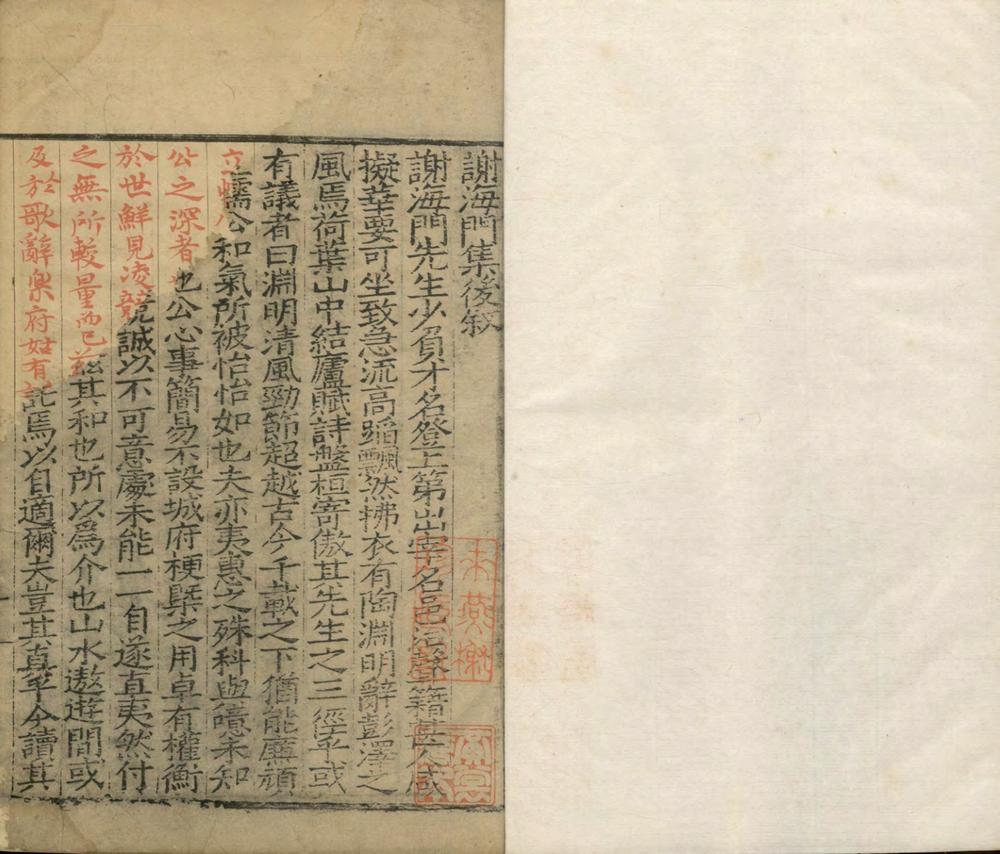 謝海門集後敘
謝海門先生少負才名登上第出宰名邑治聲籍甚人咸
擬華要可坐致急流高蹈飄然拂衣有陶淵明辭彭澤之
風焉荷葉山中結廬賦詩盤桓寄傲其先生之三徑乎或
有議者曰淵明清風勁節超越古今千載之下猶能廉頑
立懦公和氣所被怡怡如也夫亦夷惠之殊科與噫未知
公之深者也公心事簡易不設城府梗槩之用卓有權衡
於世鮮見凌競誠以不可意處未能一一自遂直夷然付
之無所較量而已茲其和也所以爲介也山水遨遊間或
及於歌辭樂府姑有託焉以自適爾夫豈其真乎今讀其
朱燕榭